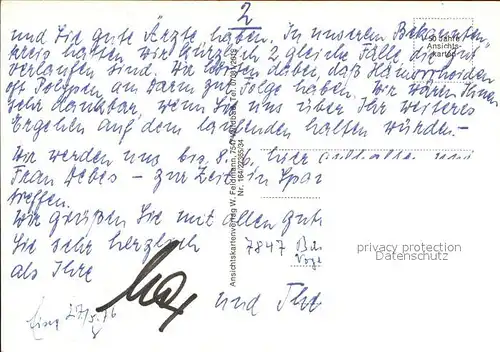 2
und Sie gute Ärzte haben. In unserem Bekannten-
kreis hatten wir kürzlich 2 gleiche Fälle, die gut
verlaufen sind. Wir hörten dabei, daß Hämorrhoiden
oft Polypen am Darm zur Folge haben. Wir wären Ihnen
sehr dankbar, wenn Sie uns über Ihr weiteres
Ergehen auf dem laufenden halten würden.-
Wir werden uns bis 8. hier
Frau - zur Zeit in
treffen.
Wir grüßen Sie mit allen
Sie sehr herzlich
als Ihre
und
7847
27/5.76
150 Jahre
Ansichts-
karten
Ansichtskartenverlag W. Feldmann, 7547 Wildbad, Tel. 07081/2943
Nr. 164/22355/34
privacy protection
Datenschutz